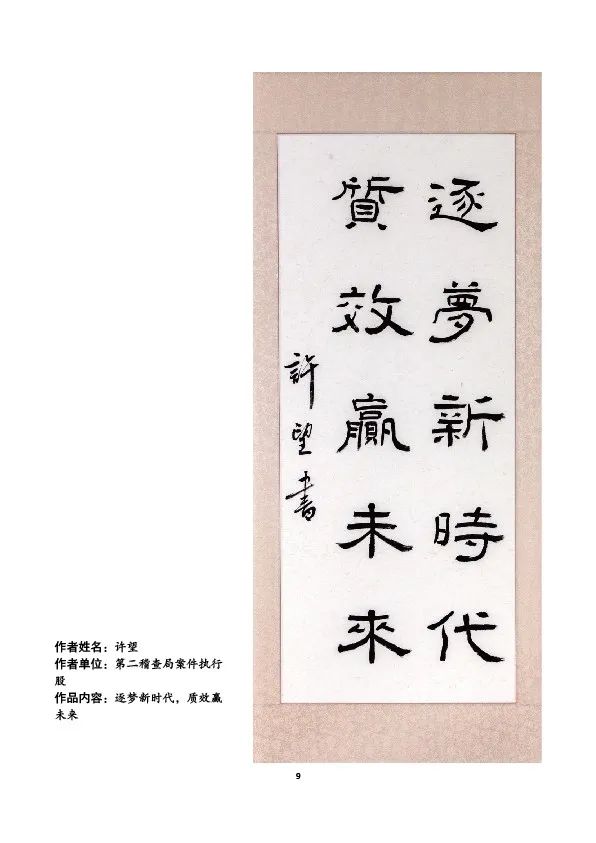 逐夢新時代
質效贏未來
許望書
作者姓名：许望
作者单位：第二稽查局案件执行
股
作品内容：逐梦新时代，质效赢
未来
9